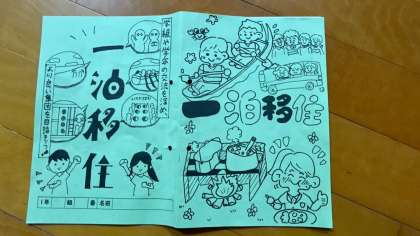 学級や学年の交流を深め、
一泊移住
より良い集団を目指そう
1年 組 番 名前
一泊移住